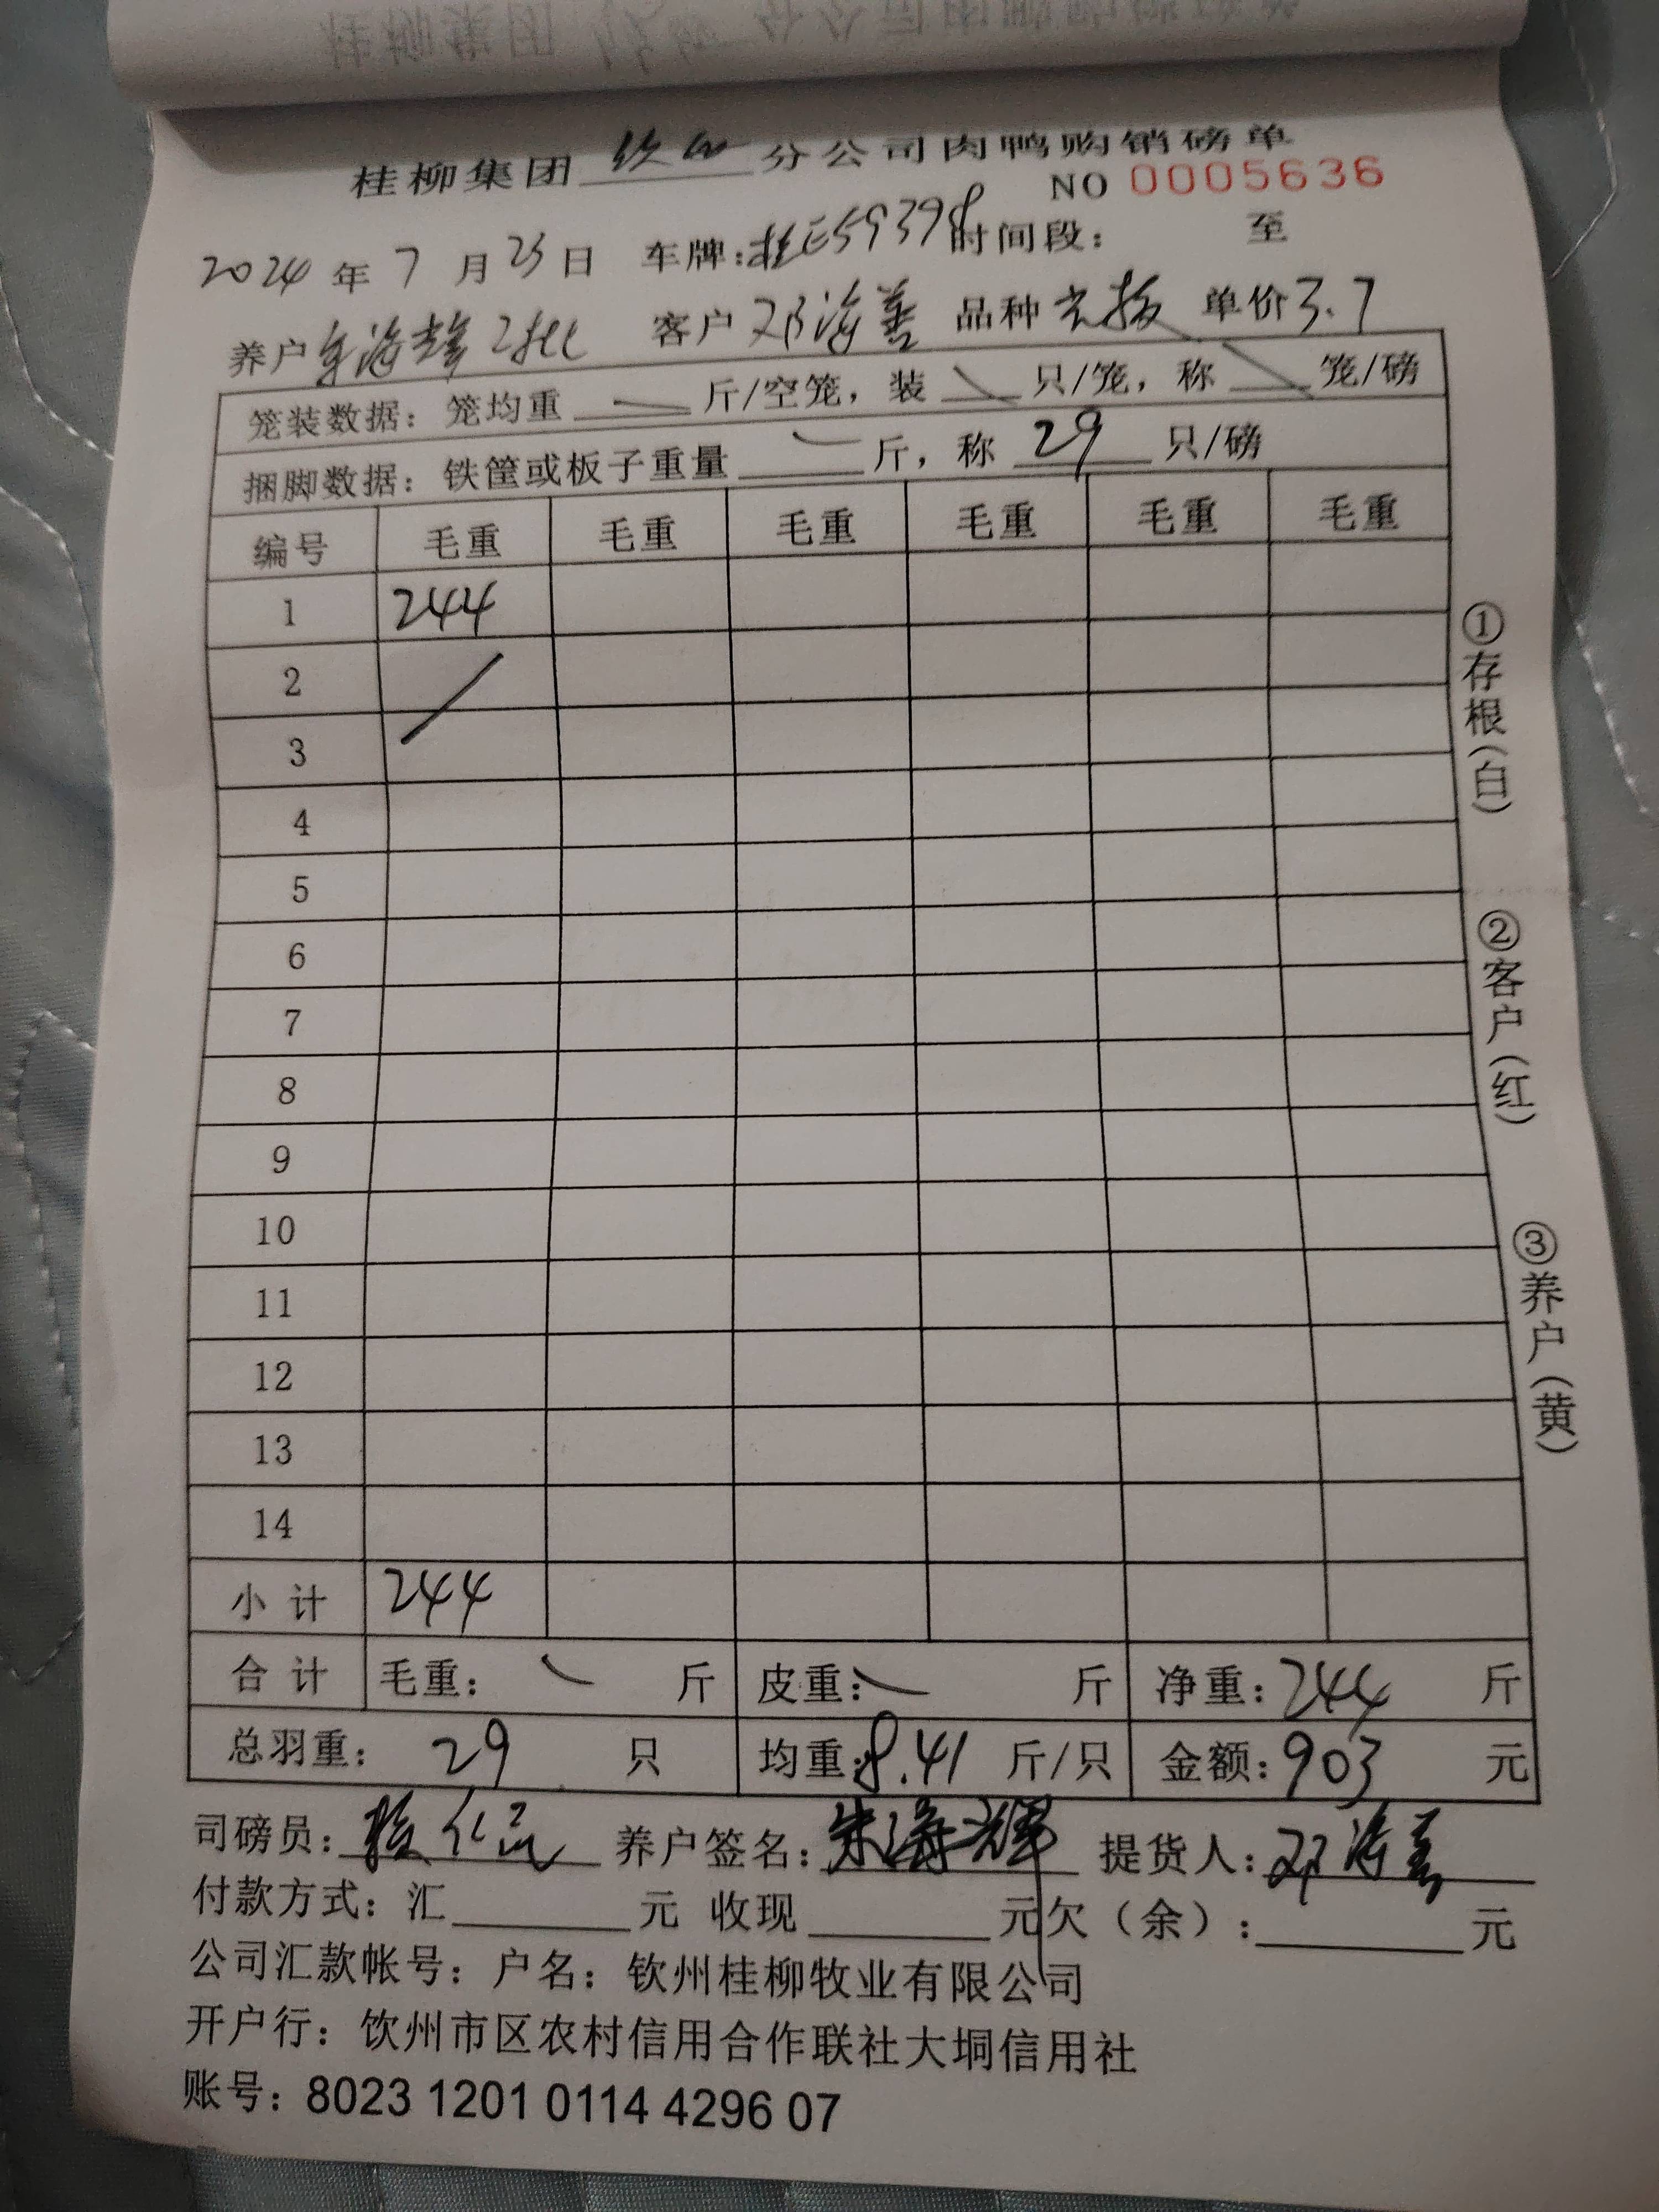 桂柳集团 钦州 分公司肉鸭购销磅单
NO 0005636
2024 年 7 月 23 日 车牌: 桂E59398 时间段: 至
养户 朱海辉 2批 客户 邓海善 品种 单价 3.7
笼装数据: 笼均重 斤/空笼, 装 只/笼, 称 笼/磅
捆脚数据: 铁筐或板子重量 斤, 称 29 只/磅
编号 毛重 毛重 毛重 毛重 毛重 毛重
1 244
2
3
4
5
6
7
8
9
10
11
12
13
14
小计 244
合计 毛重: 斤 皮重: 斤 净重: 244 斤
总羽重: 29 只 均重: 8.41 斤/只 金额: 903 元
司磅员: 养户签名: 朱海辉 提货人: 邓海善
付款方式: 汇 元 收现 元欠(余): 元
公司汇款帐号: 户名: 钦州桂柳牧业有限公司
开户行: 钦州市区农村信用合作联社大垌信用社
账号: 8023 1201 0114 4296 07
①存根(白)
②客户(红)
③养户(黄)